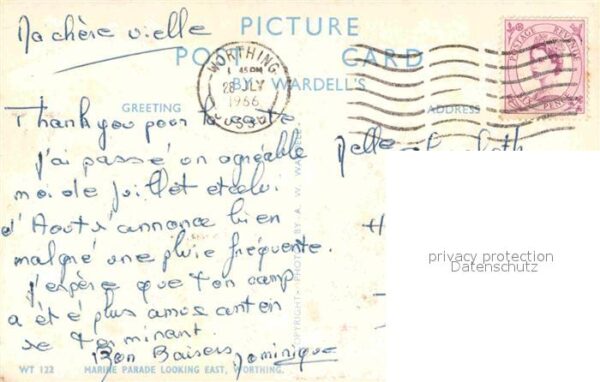 Ma chère vieille
PICTURE
POST CARD
BY WARDELL'S
WORTHING
1 45 PM
28 JLY
1966
SUSSEX
POSTAGE REVENUE
GREETING
ADDRESS
Thank you pour ta carte
j'ai passé un agréable
moi de juillet et celui
d'Aout s'annonce bien
malgré une pluie fréquente.
J'espère que ton camp
a été plus amusant en
se terminant.
Bon Baisers Dominique
COPYRIGHT - PHOTO BY A. W. WARDELL
Melle
privacy protection
Datenschutz
WT 122 MARINE PARADE LOOKING EAST, WORTHING.